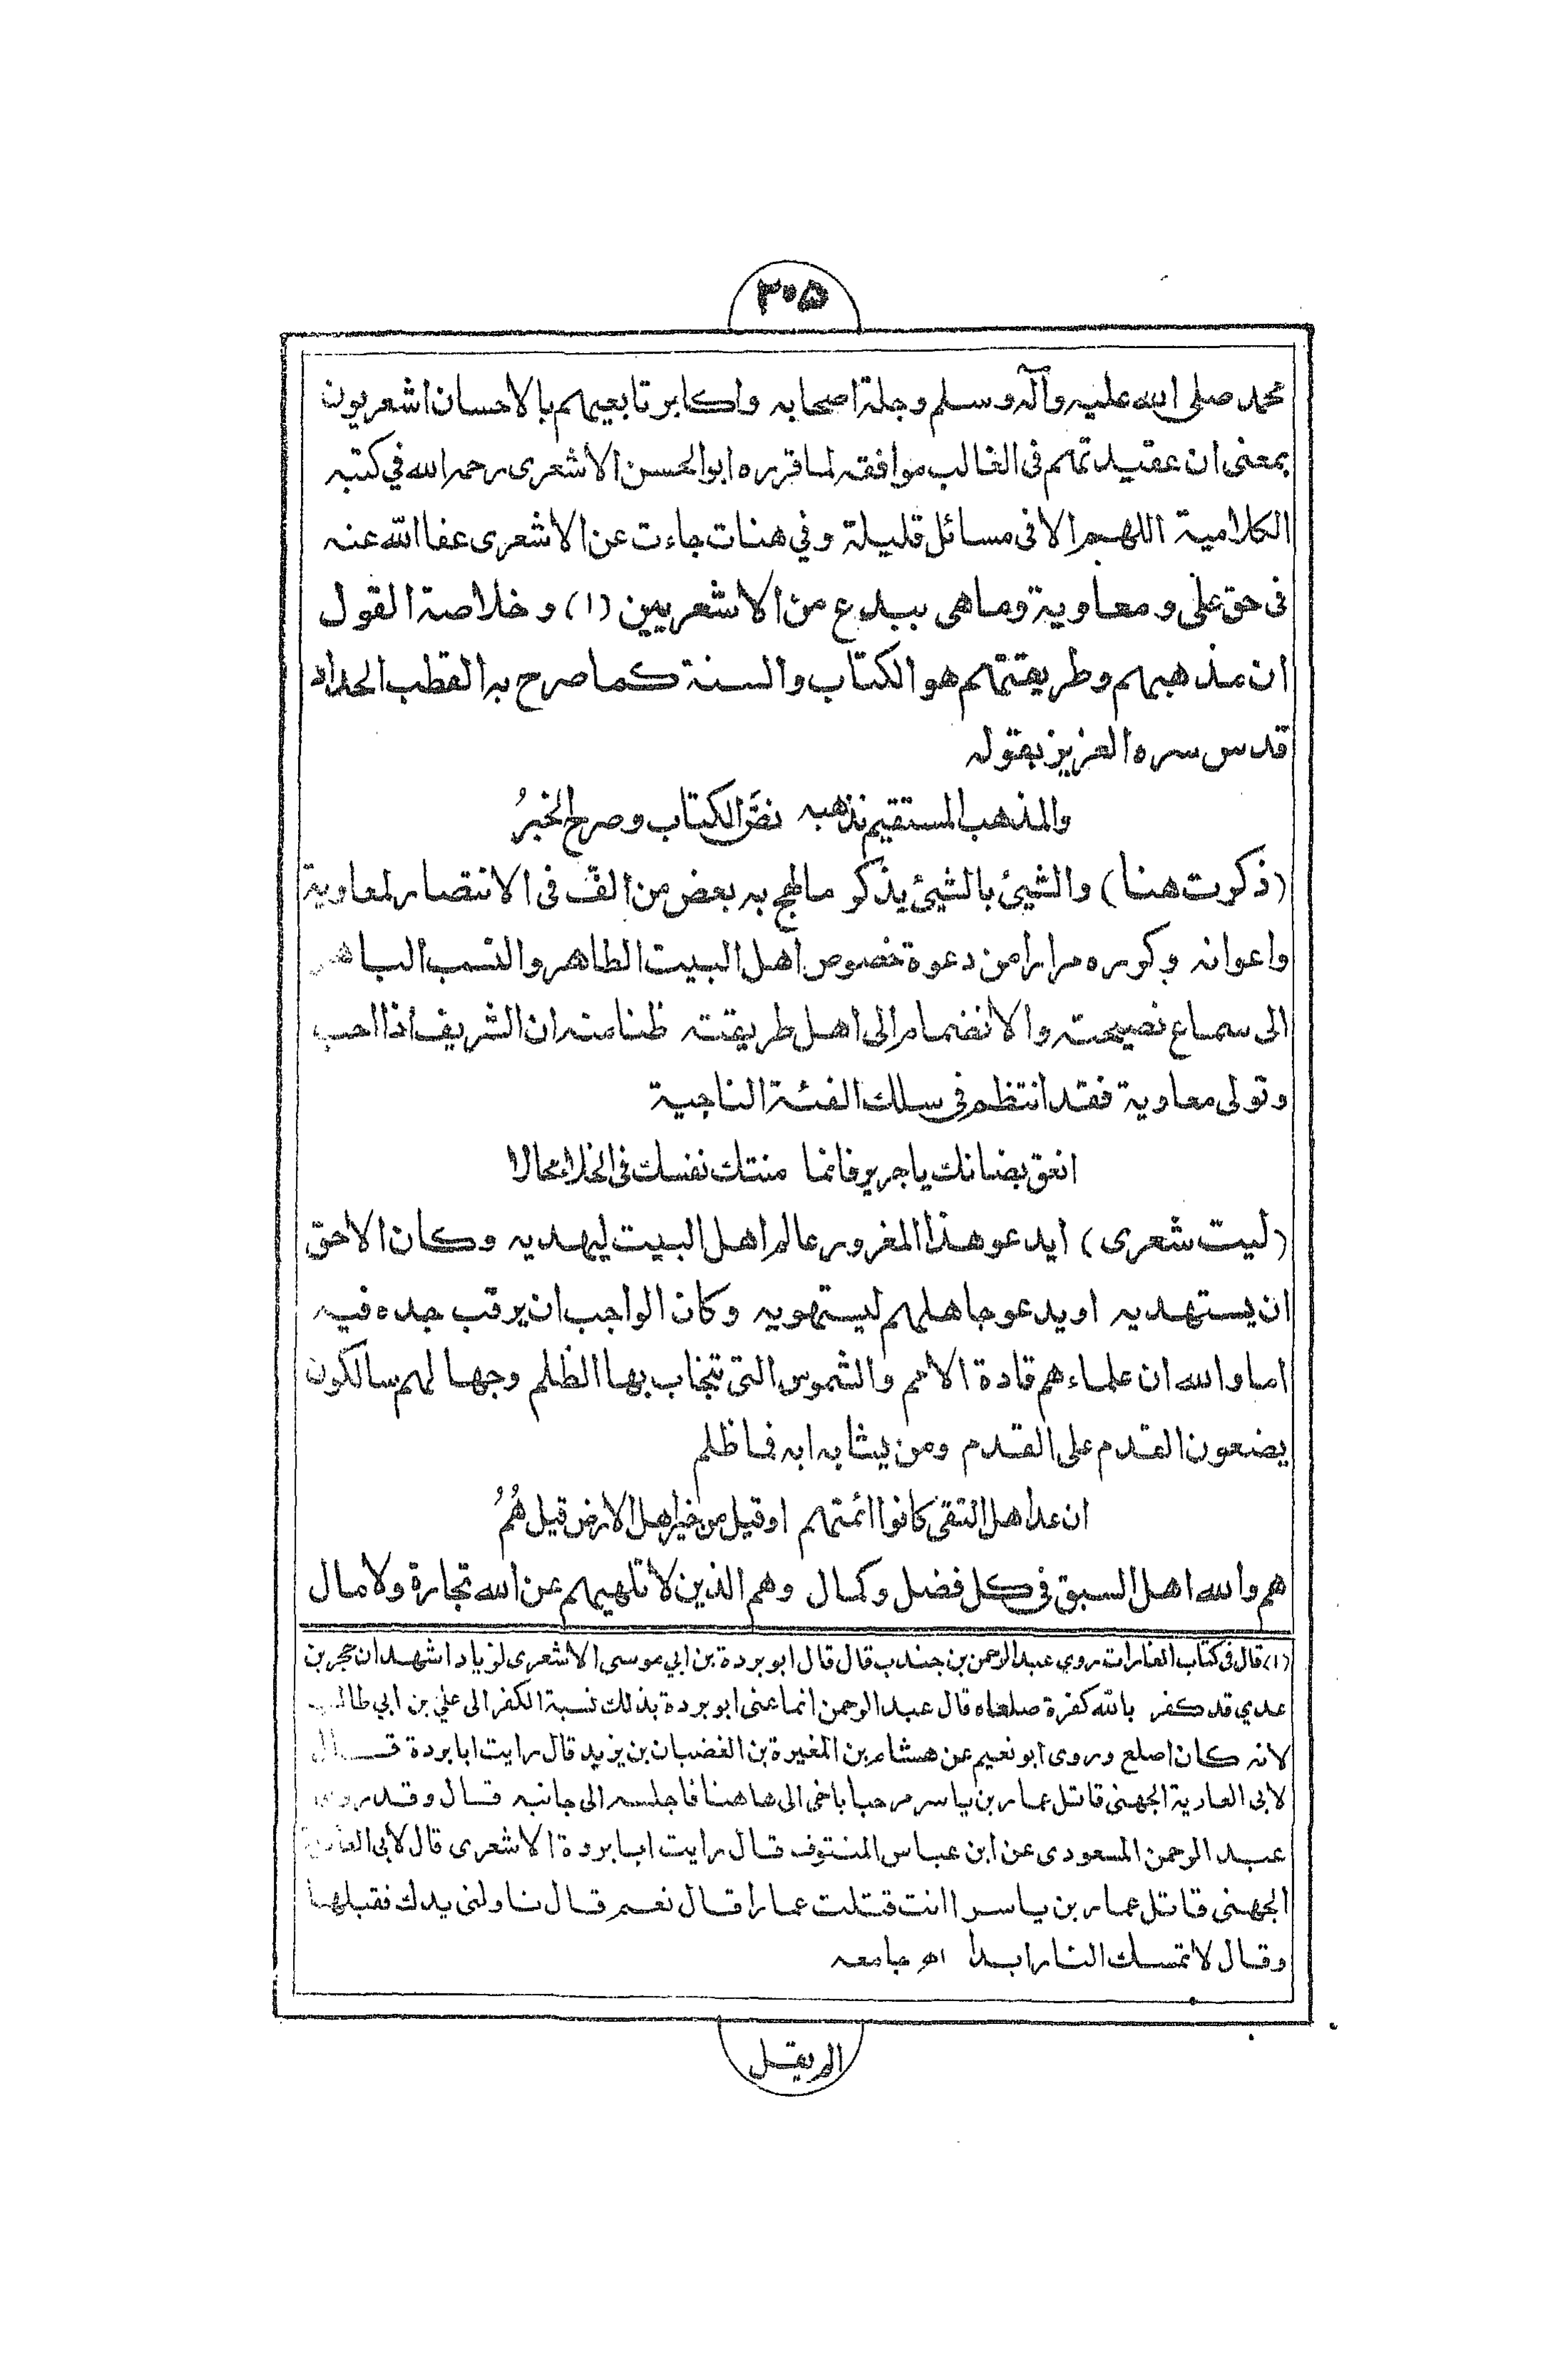 ٣٠٥
محمد صلى الله عليه وآله وسلم وجلة اصحابه واكابر تابعيهم بالاحسان اشعريون
بمعنى ان عقيدتهم فى الغالب موافقه لما قرره ابو الحسن الاشعرى رحمه الله في كتبه
الكلامية اللهم الا فى مسائل قليلة وفي هنات جاءت عن الاشعرى عفا الله عنه
فى حق على ومعاوية وما هى ببدع من الاشعريين (١) وخلاصة القول
ان مذهبهم وطريقتهم هو الكتاب والسنة كما صرح به القطب الحداد
قدس سره العزيز بقوله
والمذهب المستقيم نذهبه نصّ الكتاب وصرح الخبرُ
(ذكرت هنا) والشيئ بالشيئ يذكر ما لهج به بعض من الفّ فى الانتصار لمعاوية
واعوانه وكرره مرارا من دعوة خصوص اهل البيت الطاهر والنسب الباهر
الى سماع نصيحته والانضمام الى اهل طريقته ظنا منه ان الشريف اذا احب
وتولى معاوية فقد انتظم فى سلك الفئة الناجية
انعق بضانك يا جرير فانما منتك نفسك فى الخلاء محالا
(ليت شعرى) ايدعو هذا المغرور عالم اهل البيت ليهديه وكان الاحق
ان يستهديه او يدعو جاهلهم ليستهويه وكان الواجب ان يرقب جده فيه
اما والله ان علماءهم قادة الامم والشموس التى تنجاب بها الظلم وجها لهم سالكون
يضعون القدم على القدم ومن يشابه ابه فما ظلم
ان عد اهل التقى كانوا ائمتهم او قيل من خير اهل الارض قيل هُمُ
هم والله اهل السبق فى كل فضل وكمال وهم الذين لا تلهيهم عن الله تجارة ولا مال
(١) قال فى كتاب الغارات روي عبد الرحمن بن جندب قال قال ابو بردة بن ابي موسى الاشعرى لزياد اشهد ان حجر بن
عدي قد كفر بالله كفرة صلعاه قال عبد الرحمن انما عنى ابو بردة بذلك نسبة الكفر الى علي بن ابي طالب
لانه كان اصلع وروى ابو نعيم عن هشام بن المغيرة بن الغضبان بن يزيد قال رايت ابا بردة قال
لابى العادية الجهنى قاتل عمار بن ياسر مرحبا باخى الى هاهنا فاجلسه الى جانبه قال وقد روى
عبد الرحمن المسعودى عن ابن عباس المنتوف قال رايت ابا بردة الاشعرى قال لابى العادية
الجهنى قاتل عمار بن ياسر اانت قتلت عمارا قال نعم قال ناولنى يدك فقبلها
وقال لا تمسك النار ابدا اهـ جامعه